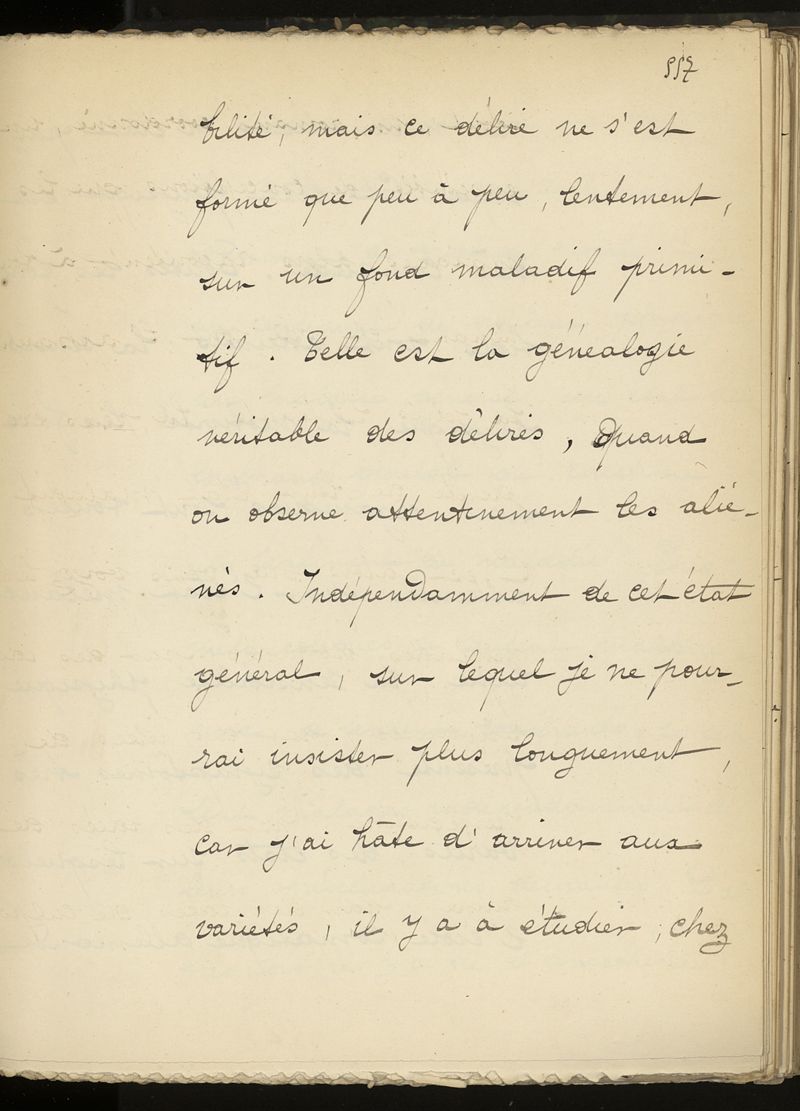 557
bilité, mais ce délire ne s'est
formé que peu à peu, lentement,
sur un fond maladif primi-
tif. Telle est la généalogie
véritable des délires, Quand
on observe attentivement les alié-
nés. Indépendamment de cet état
général, sur lequel je ne pour-
rai insister plus longuement,
car j'ai hâte d'arriver aux
variétés, il y a à étudier, chez